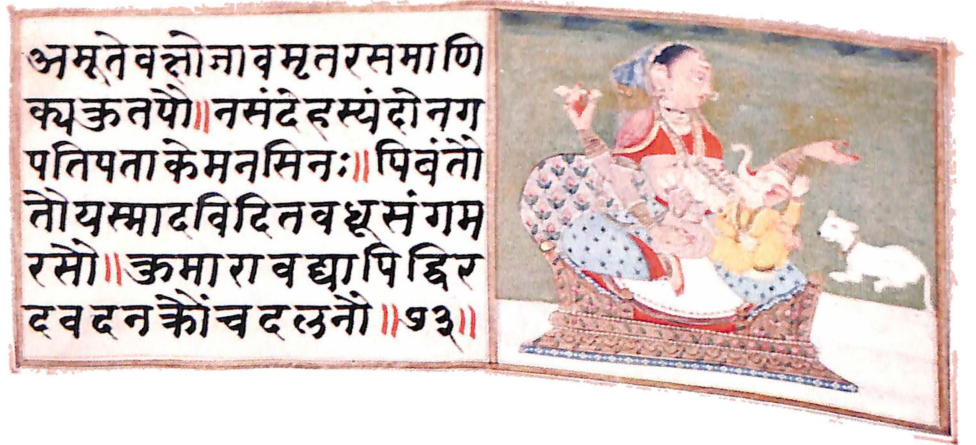 अमृतेवक्षोजावमृतरसमाणि
क्यकुतपौ॥नसंदेहस्यंदोनग
पतिपताकेमनसिनः॥पिबंतौ
तौयस्मादविदितवधूसंगम
रसौ॥कुमारावद्यापिद्विर
दवदनक्रौंचदलनौ॥७३॥